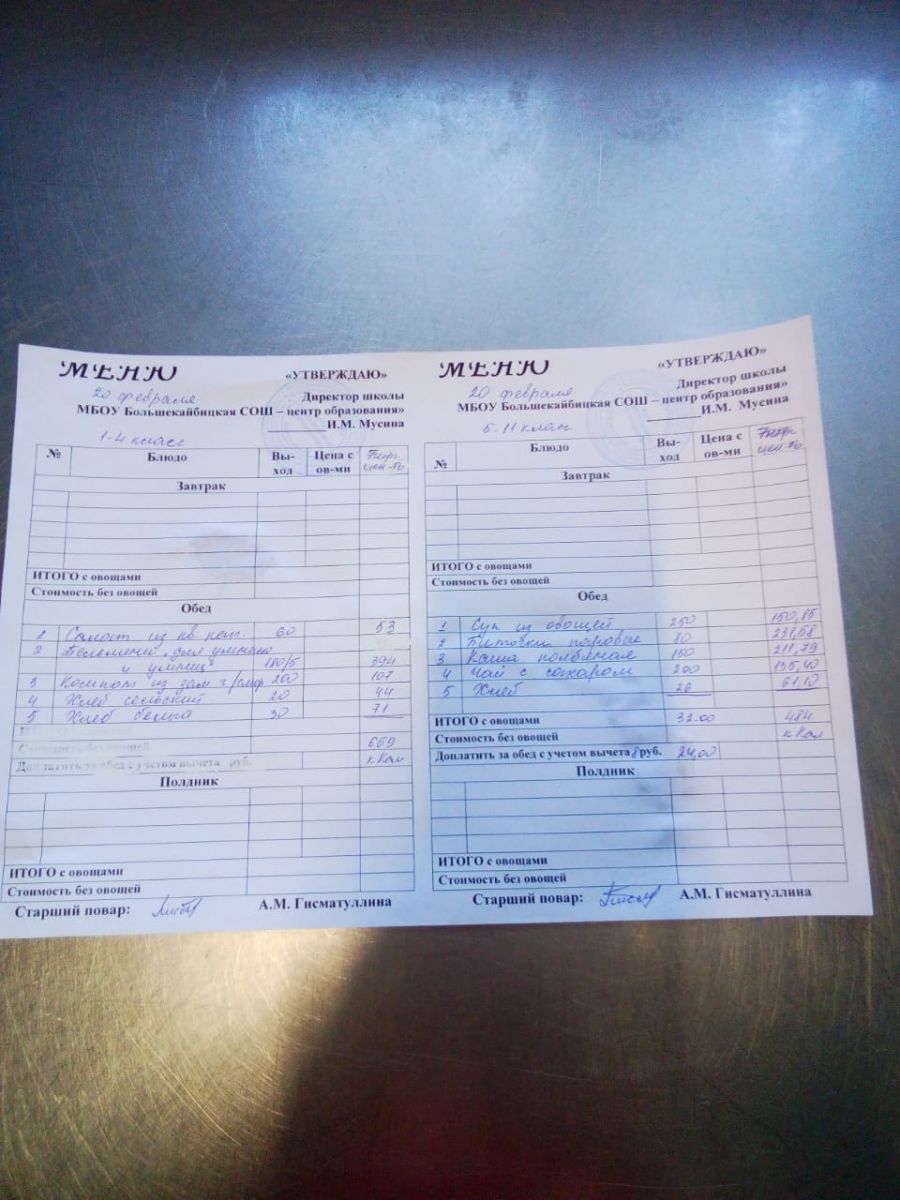 МЕНЮ «УТВЕРЖДАЮ»
20 февраля Директор школы
МБОУ Большекайбицкая СОШ – центр образования»
И.М. Мусина
1-4 класс
№ Блюдо Вы-ход Цена с ов-ми
Завтрак
ИТОГО с овощами
Стоимость без овощей
Обед
1 Салат из кв. 60 53
2
180/5 394
3 Компот из 200 107
4 Хлеб сельский 20 44
5 Хлеб белый 30 71
Стоимость без овощей 669
Доплатить за обед с учетом вычета руб. кКал
Полдник
ИТОГО с овощами
Стоимость без овощей
Старший повар: А.М. Гисматуллина
МЕНЮ «УТВЕРЖДАЮ»
20 февраля Директор школы
МБОУ Большекайбицкая СОШ – центр образования»
И.М. Мусина
5-11 класс
№ Блюдо Вы-ход Цена с ов-ми
Завтрак
ИТОГО с овощами
Стоимость без овощей
Обед
1 Суп из овощей 250 150,85
2 Биточки паровые 80
3 Каша 150 211,79
4 Чай с сахаром 200
5 Хлеб 61,10
ИТОГО с овощами 32.00 484
Стоимость без овощей кКал
Доплатить за обед с учетом вычета 8 руб. 24,00
Полдник
ИТОГО с овощами
Стоимость без овощей
Старший повар: А.М. Гисматуллина